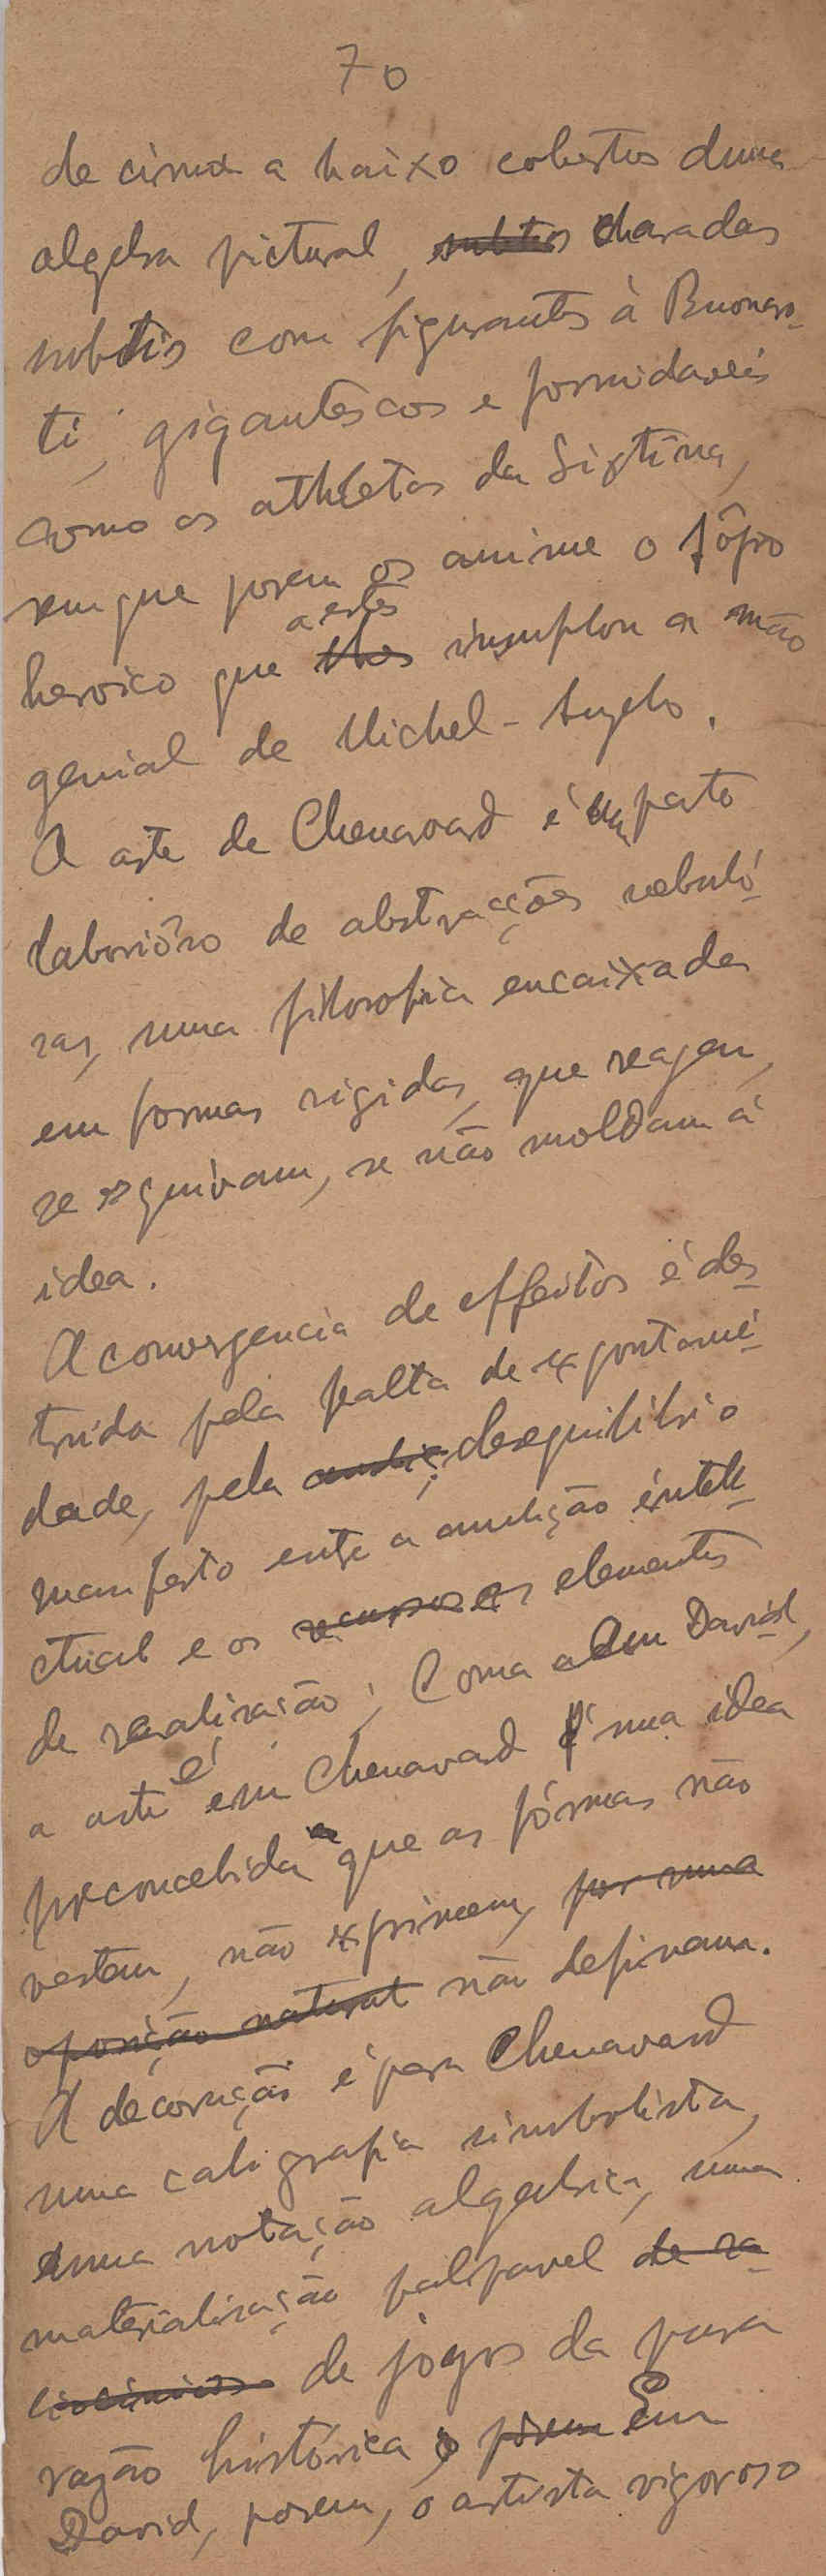 70
de cima a baixo cobertos duma
algebra pictural, subtis charadas
subtis com figurantes à Buonaro-
ti, gigantescos e formidaveis
como os athletas da Sixtina,
sem que porem os anime o sôpro
a estes
heroico que lhes insuflou a mão
genial de Michel-Angelo.
A arte de Chenavard é um parto
laboriôso de abstracções nebuló-
sas, uma filosofia encaixada
em formas rigidas, que reagem,
se esquivam, se não moldam á
idea.
A convergencia de effeitos é des-
truida pela falta de expontanei-
dade, pela ambiç. desequilibrio
manifesto entre a ambição intele-
ctual e os recursos os elementos
de realização; Como alem David,
a arte é em Chenavard é uma idea
preconcebida a que as fórmas não
vestem, não exprimem, por uma
oposição natural não definem.
A decoração é para Chenavard
uma caligrafia simbolista,
uma notação algebrica, uma
materialização palpavel de ra-
ciocinios de jogos da pura
razão histórica, e porem Em
David, porem, o artista vigoroso